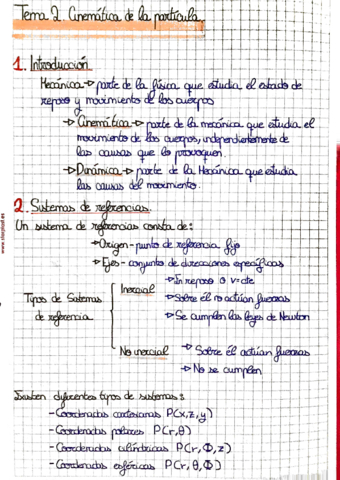 Tema 2. Cinemática de la partícula.
1. Introducción
Mecánica → parte de la física que estudia el estado de
reposo y movimiento de los cuerpos
→ Cinemática → parte de la mecánica que estudia el
movimiento de los cuerpos, independientemente de
las causas que lo provoquen.
→ Dinámica → parte de la Mecánica que estudia
las causas del movimiento.
2. Sistemas de referencias.
Un sistema de referencias consta de:
→ Origen - punto de referencia fijo
→ Ejes - conjunto de direcciones específicas
Tipos de Sistemas
de referencia
Inercial
→ En reposo o v=cte
→ Sobre él no actúan fuerzas
→ Se cumplen las leyes de Newton
No inercial
→ Sobre él actúan fuerzas
→ No se cumplen
Existen diferentes tipos de sistemas:
- Coordenadas cartesianas P(x,z,y)
- Coordenadas polares P(r,θ)
- Coordenadas cilíndricas P(r,Φ,z)
- Coordenadas esféricas P(r,θ,Φ)